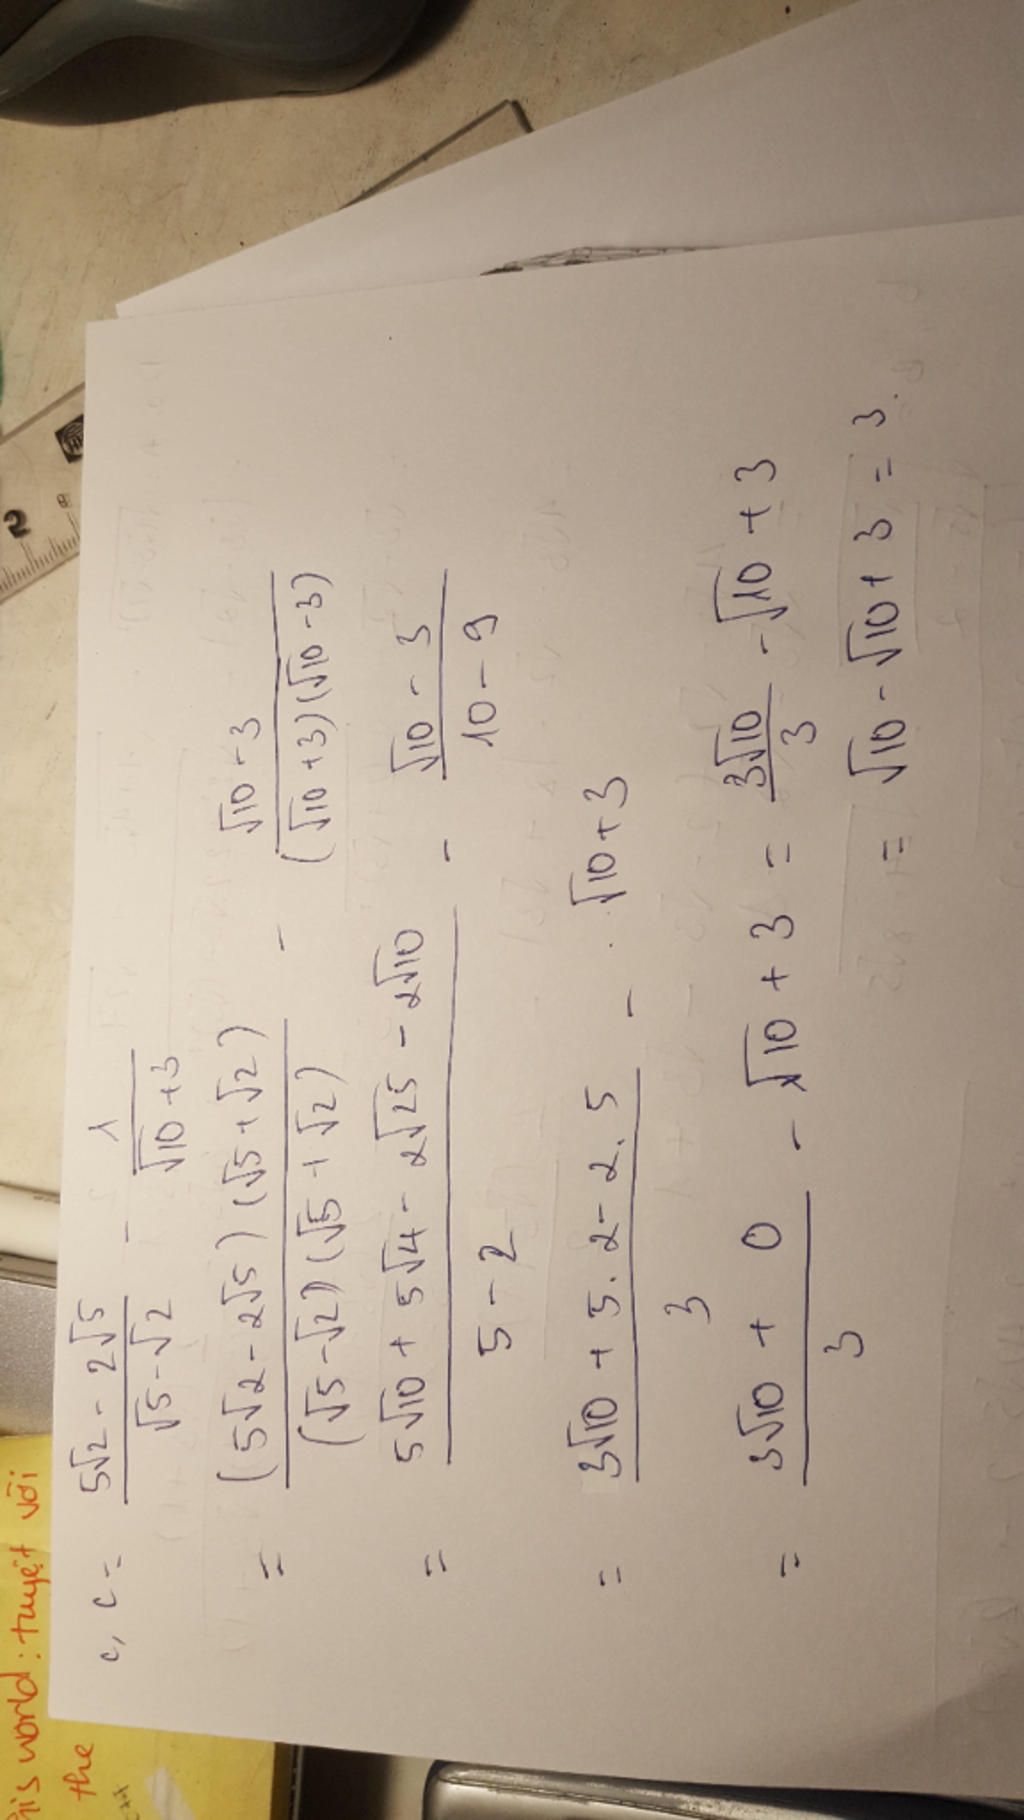 c, C = \frac{5\sqrt{2} - 2\sqrt{5}}{\sqrt{5} - \sqrt{2}} - \frac{1}{\sqrt{10} + 3}
= \frac{(5\sqrt{2} - 2\sqrt{5})(\sqrt{5} + \sqrt{2})}{(\sqrt{5} - \sqrt{2})(\sqrt{5} + \sqrt{2})} - \frac{\sqrt{10} - 3}{(\sqrt{10} + 3)(\sqrt{10} - 3)}
= \frac{5\sqrt{10} + 5\sqrt{4} - 2\sqrt{25} - 2\sqrt{10}}{5 - 2} - \frac{\sqrt{10} - 3}{10 - 9}
= \frac{3\sqrt{10} + 5.2 - 2.5}{3} - \sqrt{10} + 3
= \frac{3\sqrt{10} + 0}{3} - \sqrt{10} + 3 = \frac{3\sqrt{10}}{3} - \sqrt{10} + 3
= \sqrt{10} - \sqrt{10} + 3 = 3.
his world: tuyệt vời
the
2